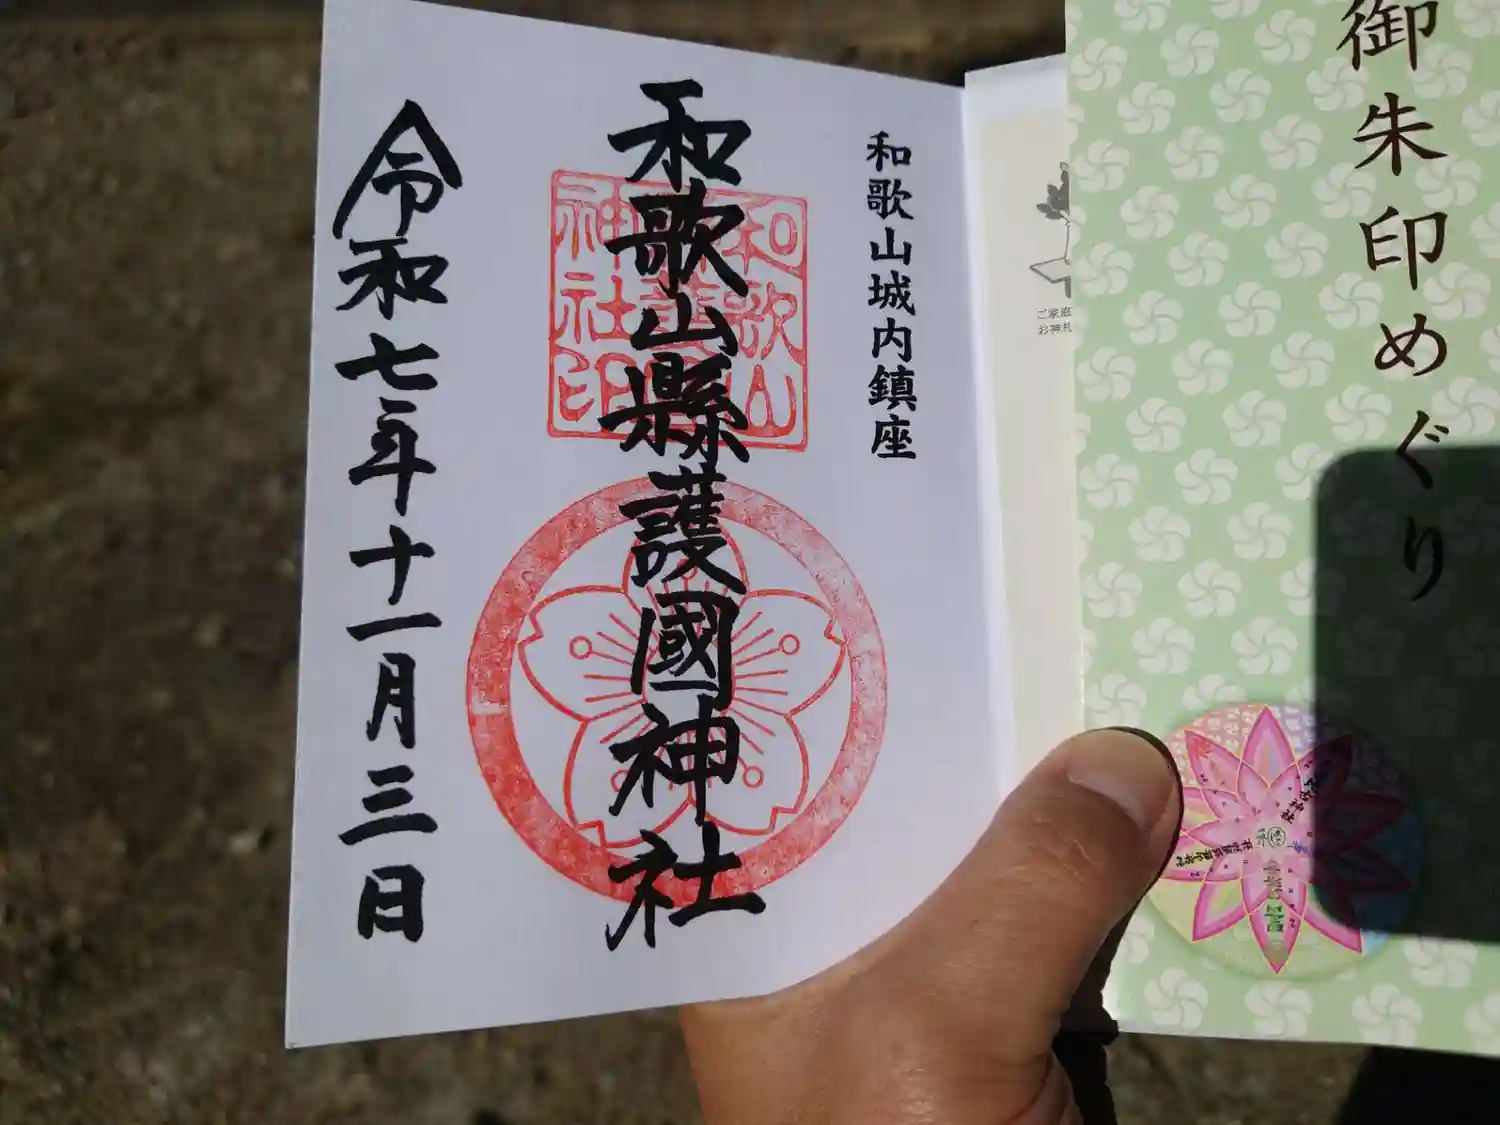 御朱印めぐり
和歌山城内鎮座
和歌山縣護國神社
令和七年十一月三日
和歌山
神社印
ご家庭
お神札